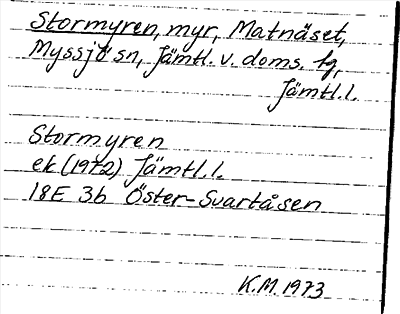 Stormyren, myr, Matnäset,
Myssjö sn, Jämtl. v. doms. tg,
Jämtl.l.
Stormyren
ek (1972) Jämtl.l.
18E 3b Öster-Svartåsen
K.M. 1973